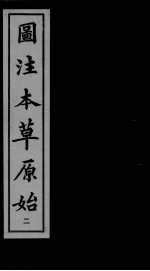 圖注本草原始
二